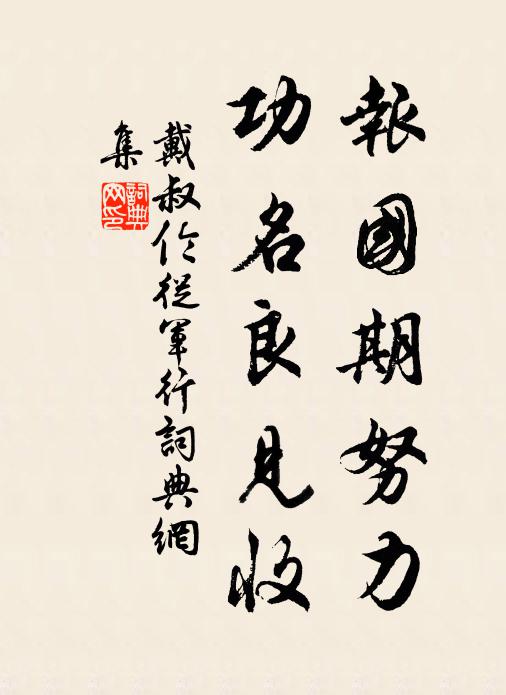 報國期努力
功名良見收
戴叔伦從軍行詞典網
集
詞典
网印